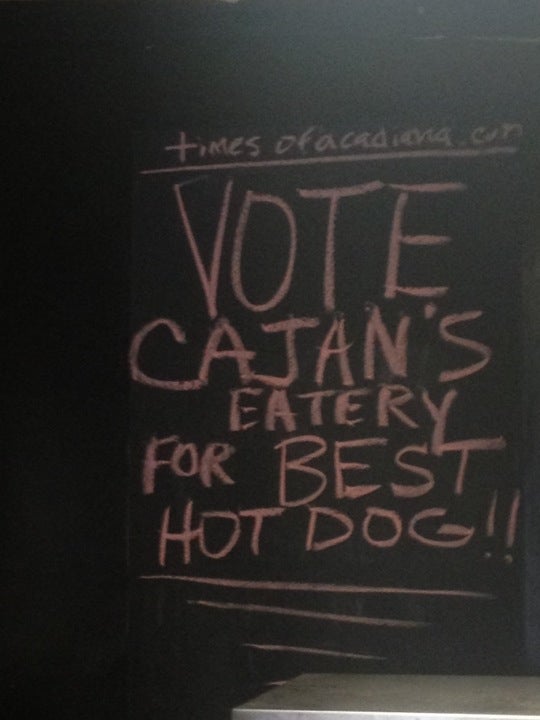 timesofacadiana.com
VOTE
CAJAN'S
EATERY
FOR BEST
HOT DOG!!